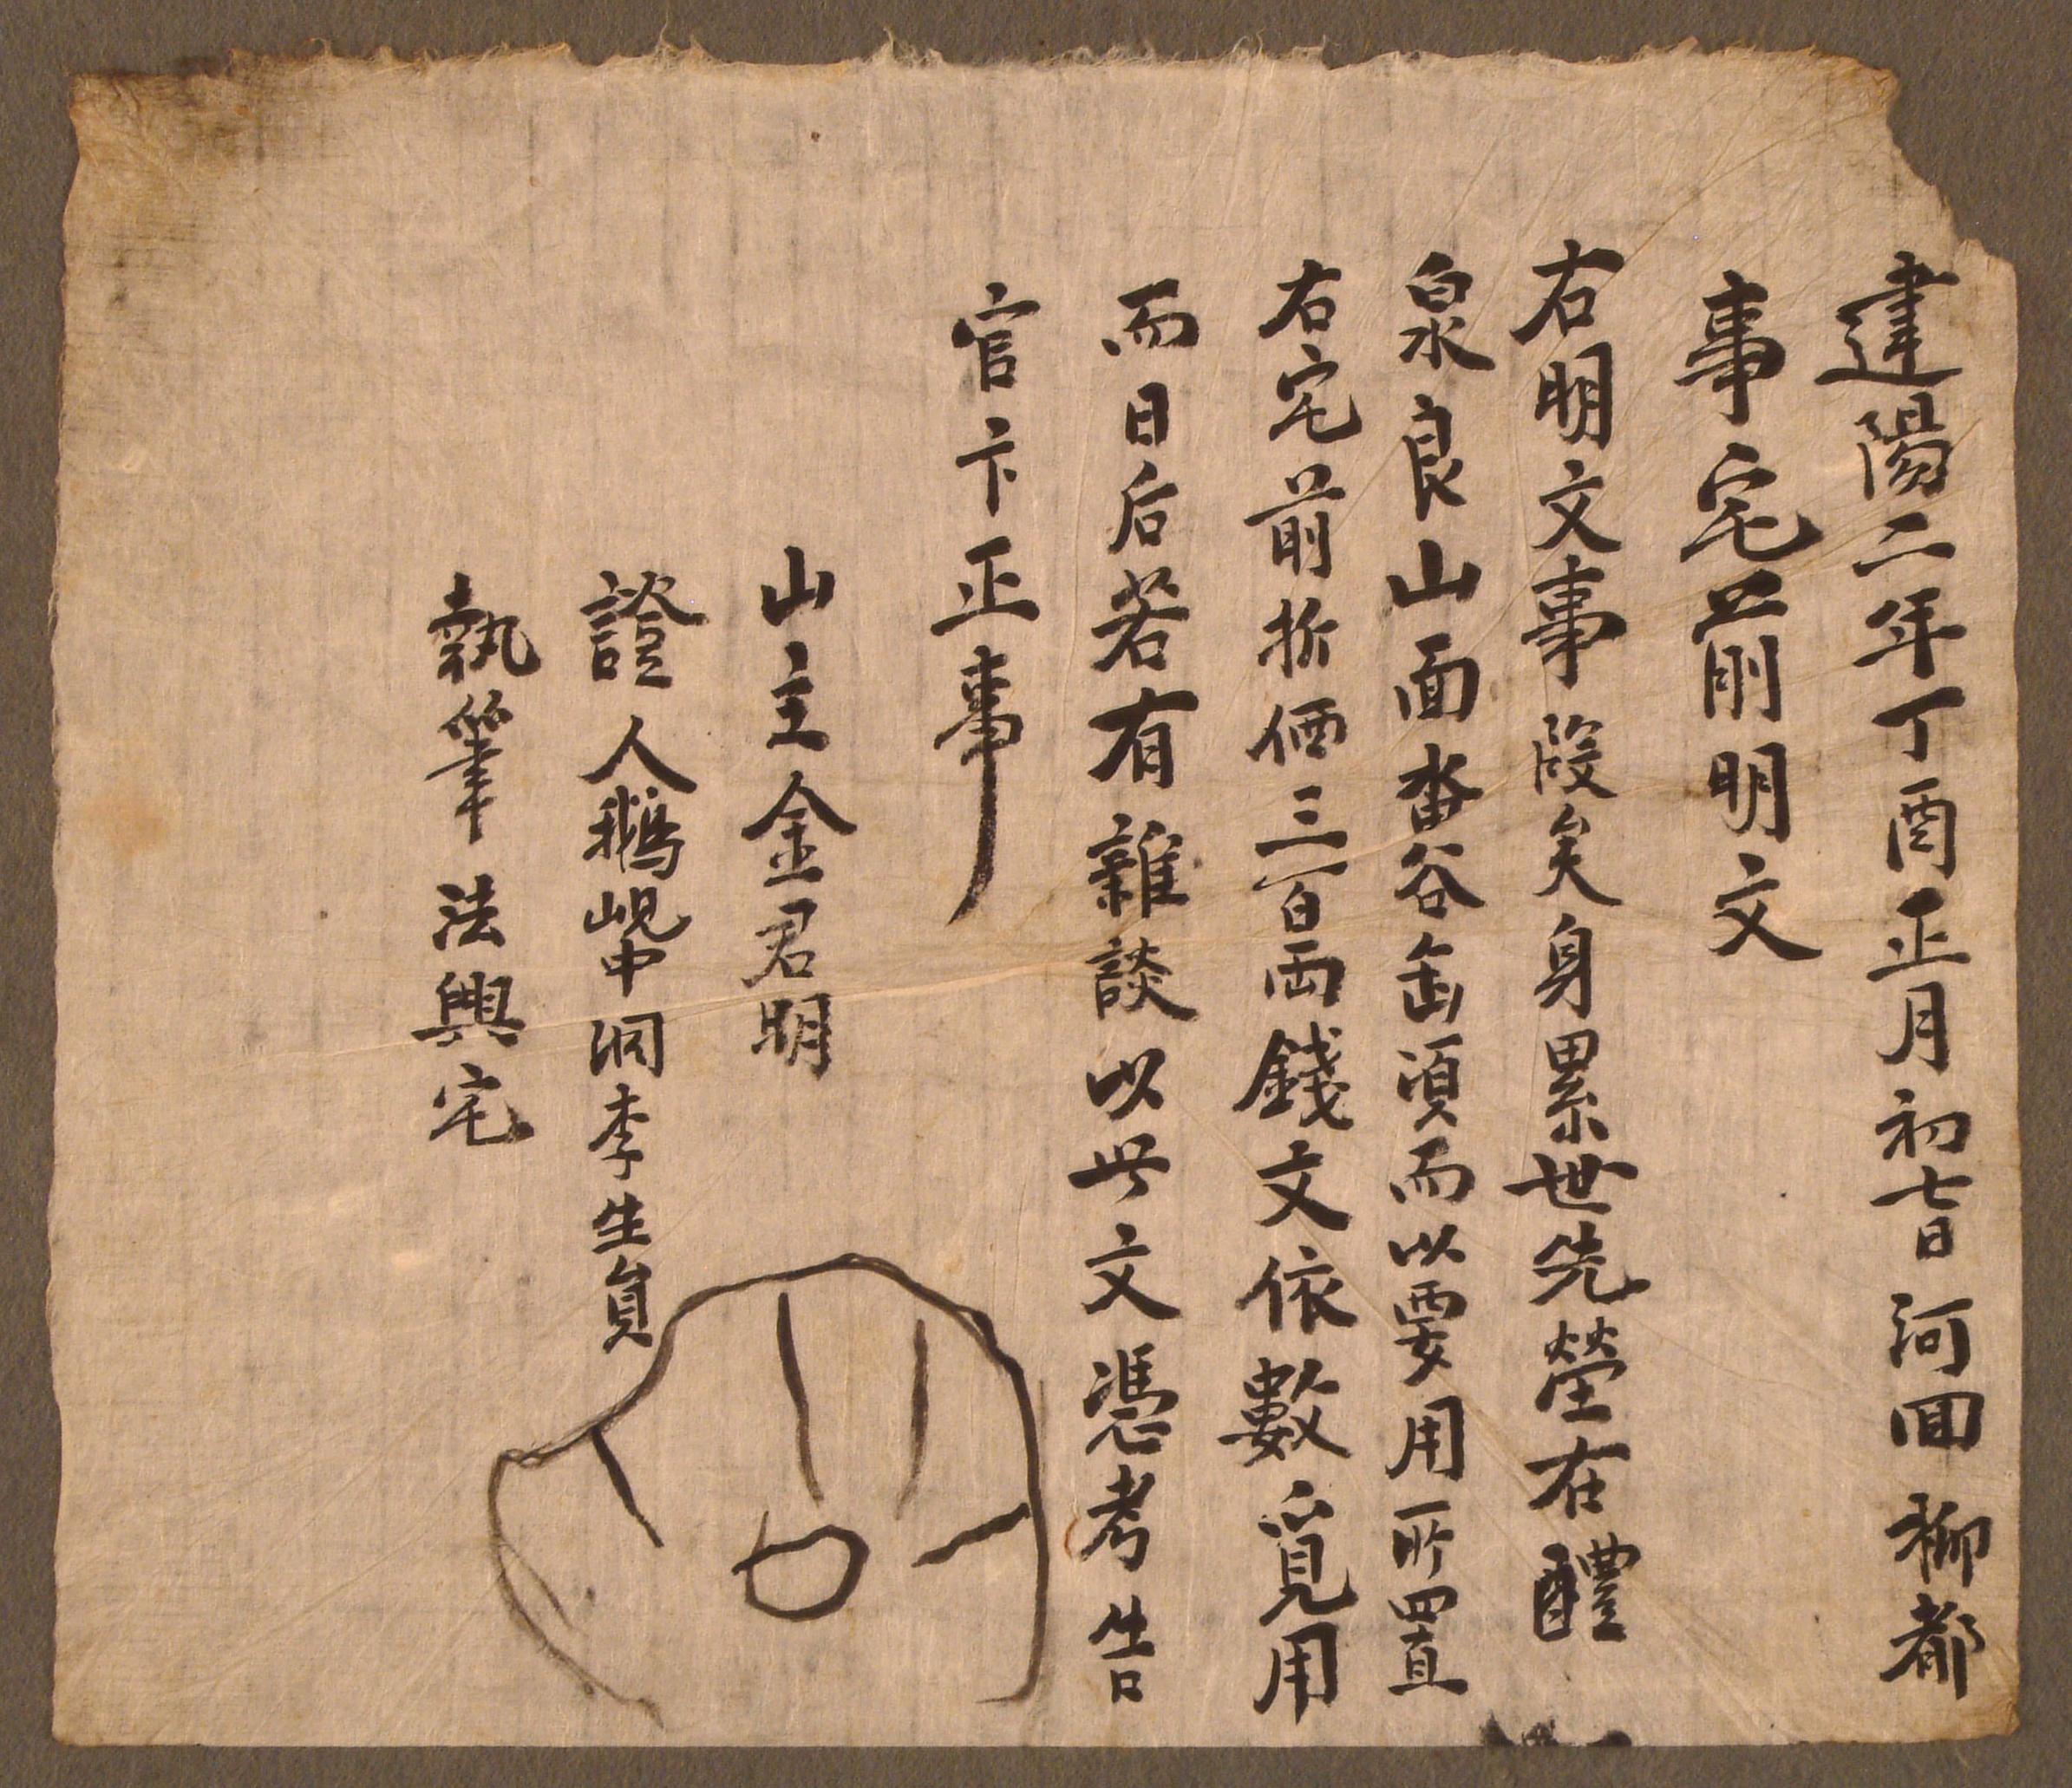 建陽二年丁酉正月初七日河回柳都
事宅前明文
右明文事段矣身累世先塋在醴
泉良山面畓谷缶項而以要用所置
右宅前折価三百両錢文依數覓用
而日后若有雜談以此文憑考告
官卞正事
山主金君明
證人鵝峴中洞李生員
執筆法興宅